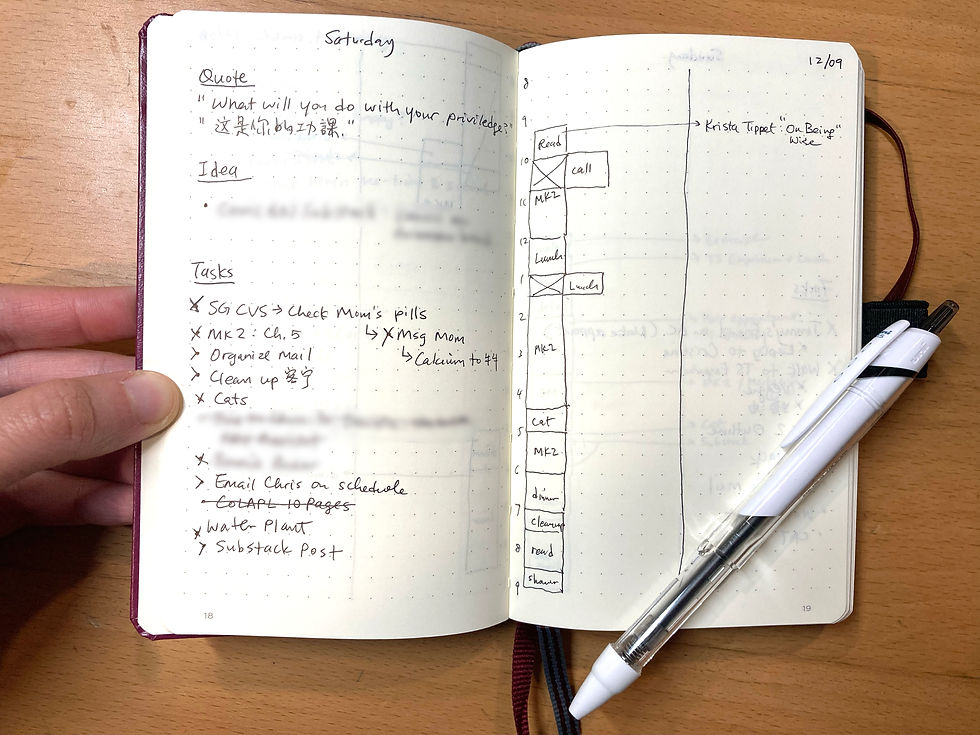 Saturday
Quote
"What will you do with your priviledge?"
"这是你的功課."
Idea
Tasks
X SG CVS → Check Mom's pills
X MK2: Ch. 5
↳ X Msg Mom
> Organize mail
↳ Calcium to 牛牛
> Clean up 客厅
X Cats
X
> Email Chris on schedule
• CoLAPL 10 Pages
X Water Plant
> Substack Post
18
12/09
8
9
Read
→ Krista Tippet: "On Being"
Wise
10
call
MK2
11
12
Lunch
1
Lunch
2
MK2
3
4
cat
5
MK2
6
dinner
7
cleanup
8
read
9
shower
19